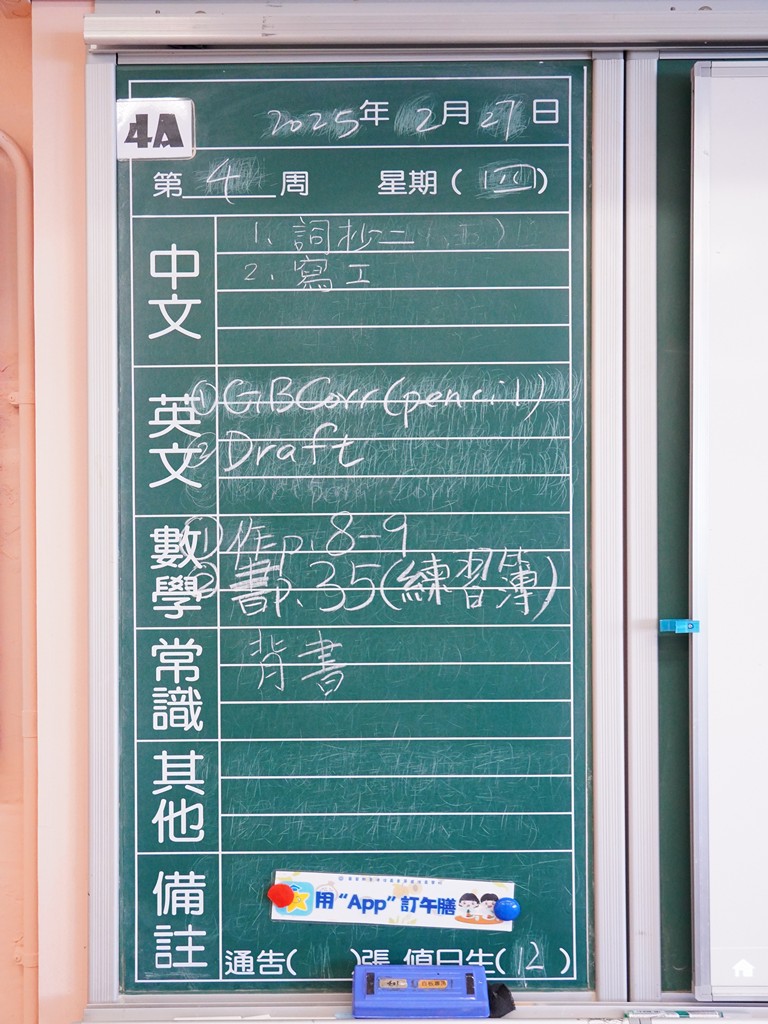 4A
2025年2月27日
第 4 周 星期(四)
中文
1. 詞抄二
2. 寫工
英文
① GBCorr(pencil)
② Draft
數學
① 作p. 8-9
② 書p. 35(練習簿)
常識
背書
其他
備註
用“App”訂午膳
通告( )張 值日生(12)